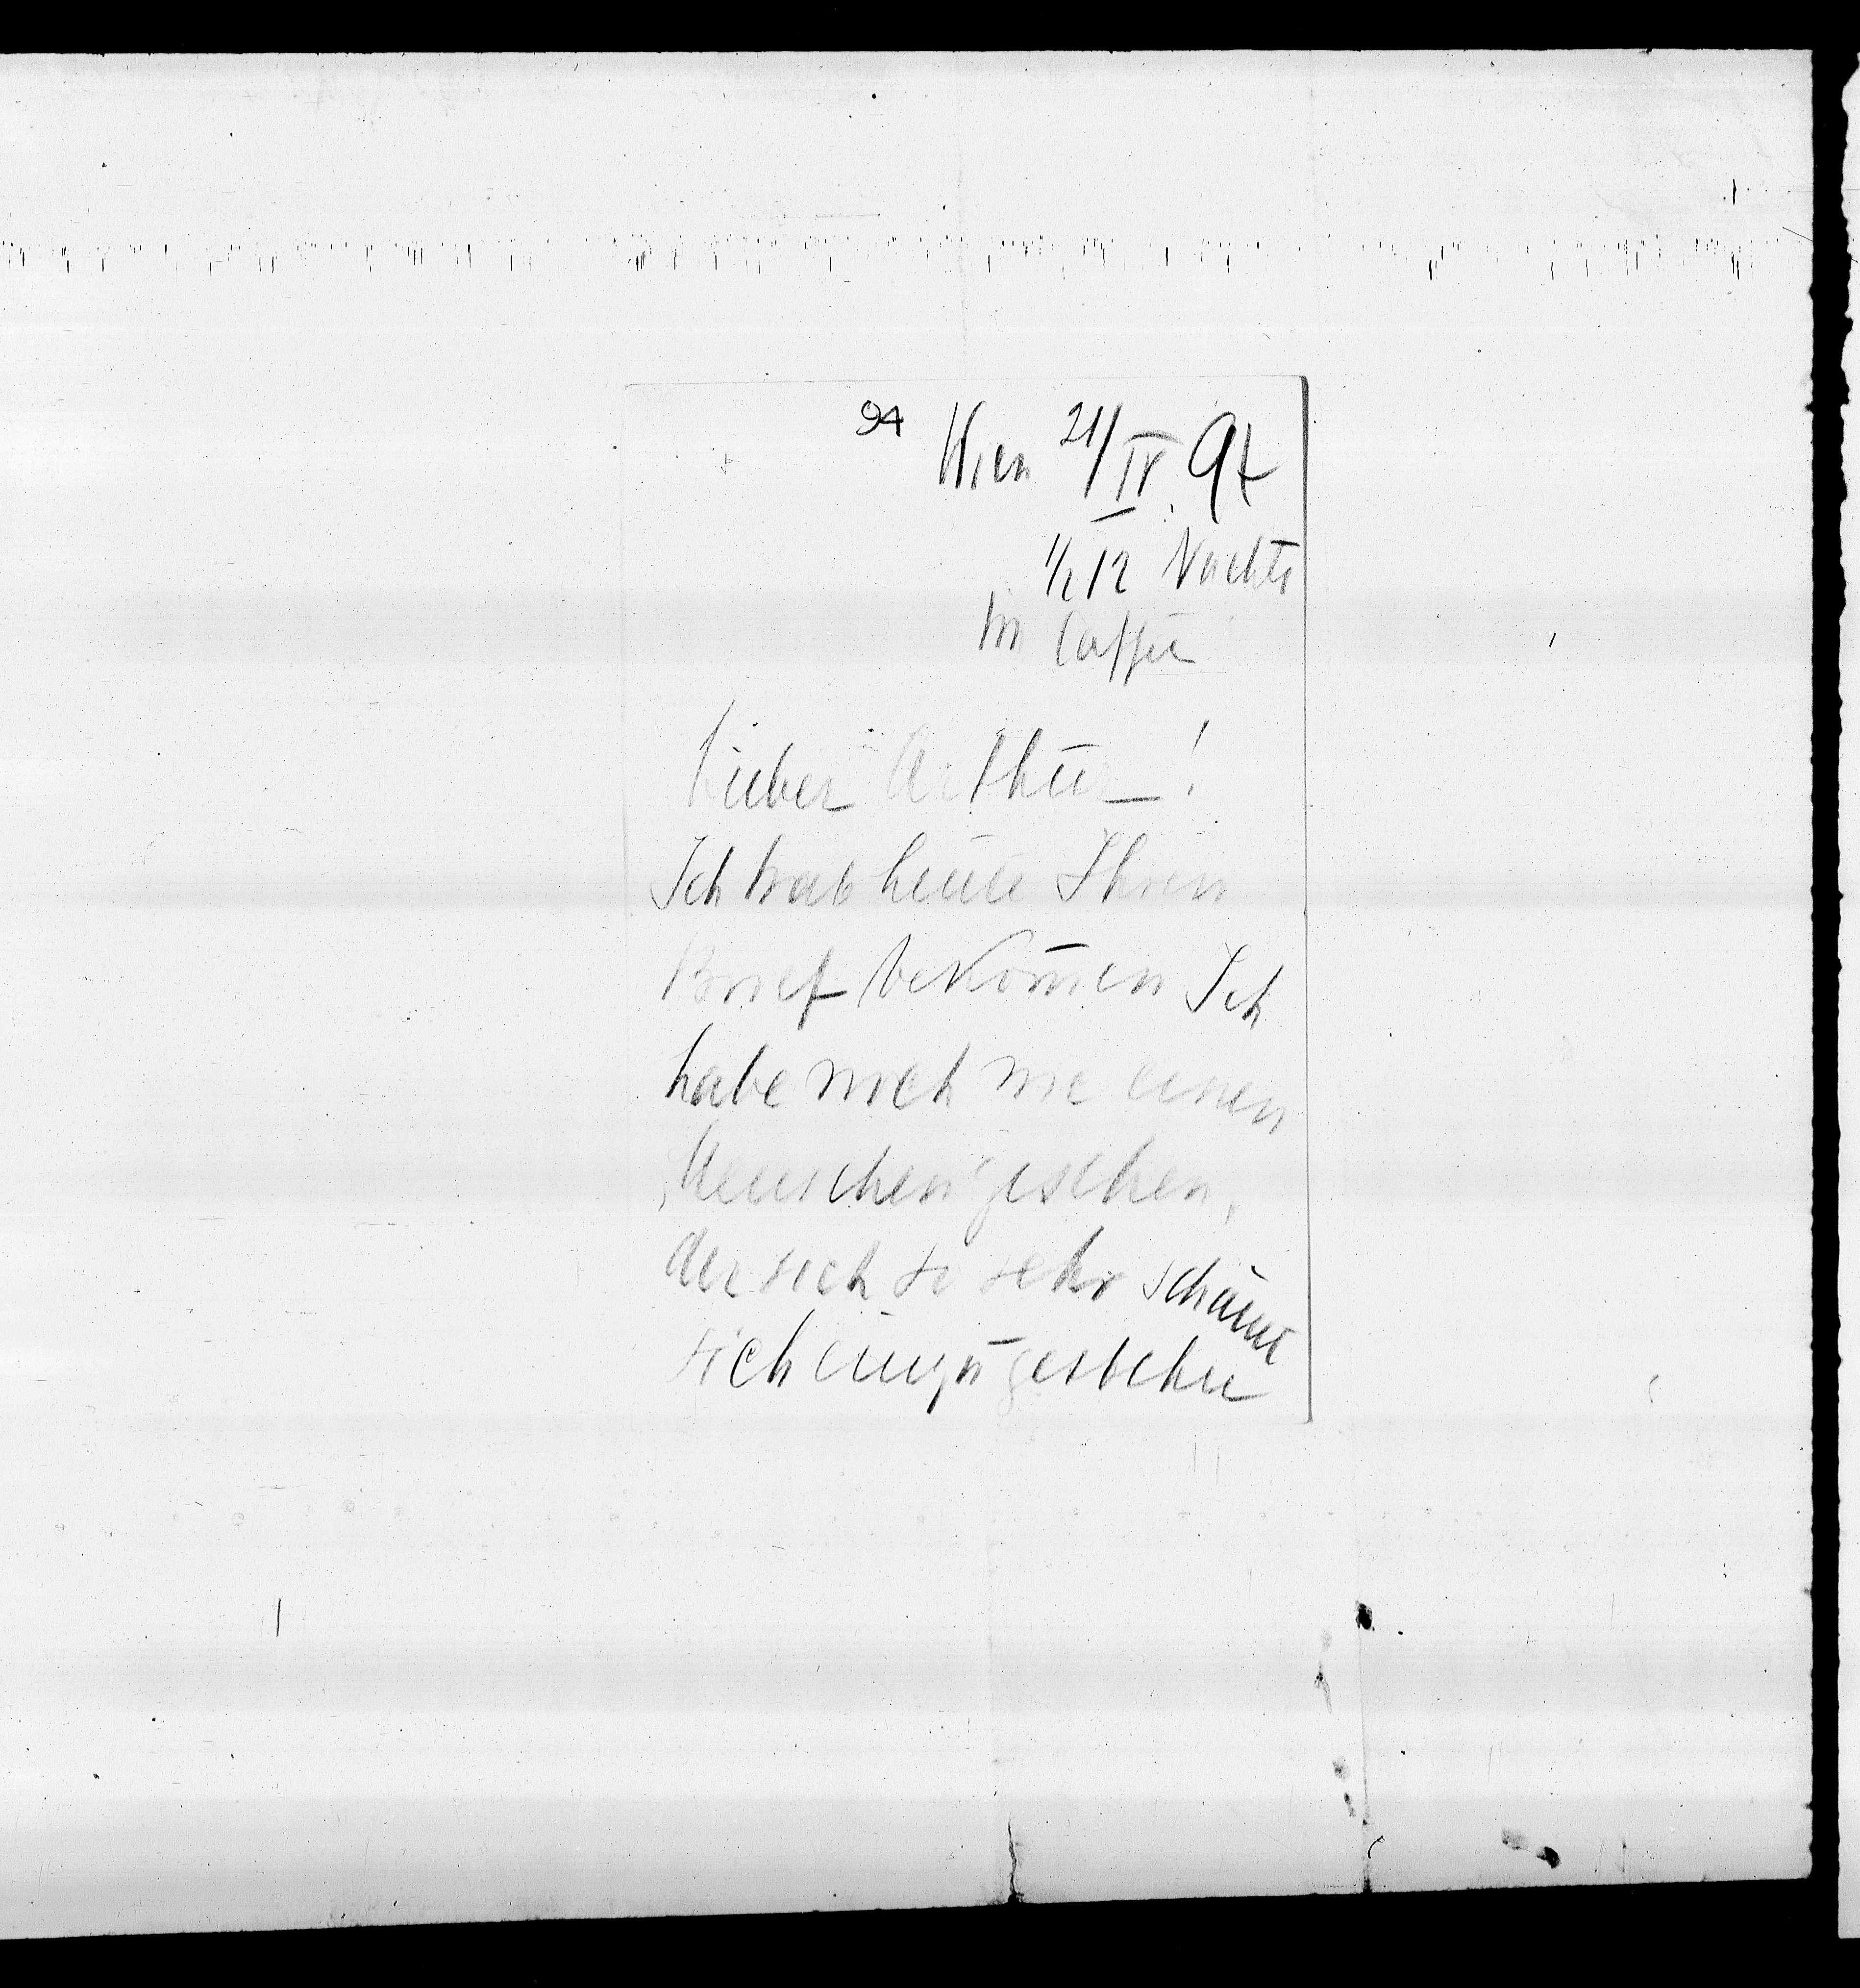 94
Wien 21/IV. 97
1/2 12 Nachts
im Caffee
Lieber Arthur!
Ich hab heute Ihren
Brief bekom̄en Ich
habe noch nie einen
Menschen gesehen,
der sich so sehr schämt
sich einzugestehen